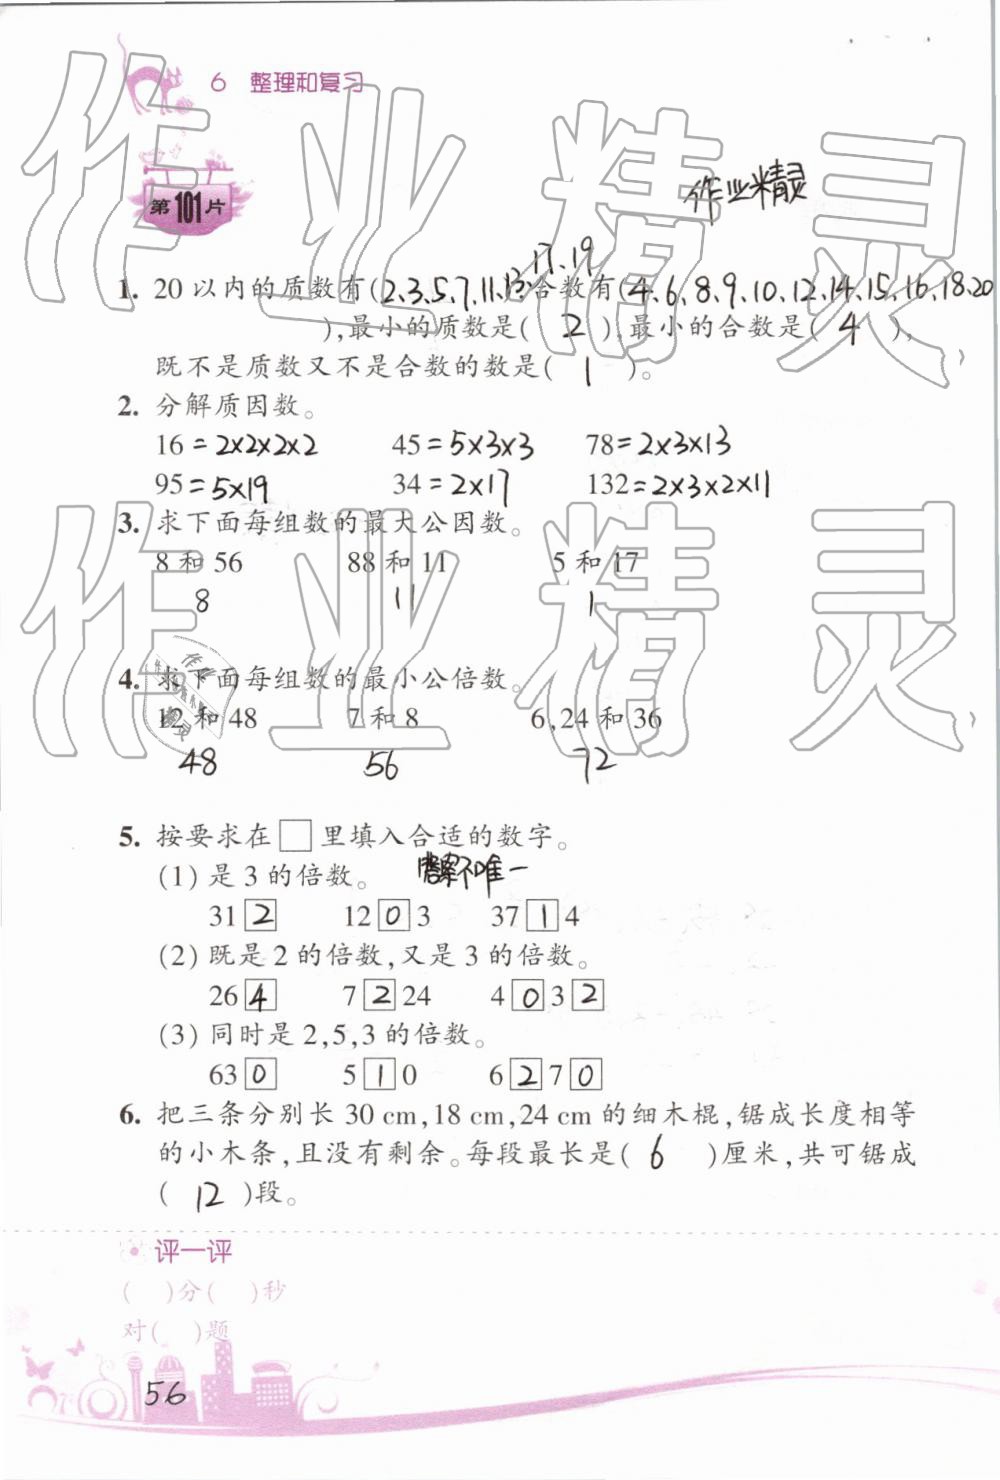 6 整理和复习
作业精灵
第101片
作业精灵
17、19
1. 20以内的质数有(2、3、5、7、11、13、合数有(4、6、8、9、10、12、14、15、16、18、20
),最小的质数是( 2 ),最小的合数是( 4 ),
既不是质数又不是合数的数是( 1 )。
2. 分解质因数。
16=2×2×2×2 45=5×3×3 78=2×3×13
95=5×19 34=2×17 132=2×3×2×11
作业精灵
3. 求下面每组数的最大公因数。
8和56 88和11 5和17
8 11 1
4. 求下面每组数的最小公倍数。
12和48 7和8 6,24和36
48 56 72
5. 按要求在□里填入合适的数字。
(1) 是3的倍数。 答案不唯一
31 2 12 0 3 37 1 4
(2) 既是2的倍数,又是3的倍数。
26 4 7 2 24 4 0 3 2
(3) 同时是2,5,3的倍数。
63 0 5 1 0 6 2 7 0
6. 把三条分别长30 cm,18 cm,24 cm的细木棍,锯成长度相等
的小木条,且没有剩余。每段最长是( 6 )厘米,共可锯成
( 12 )段。
评一评
( )分( )秒
对( )题
56